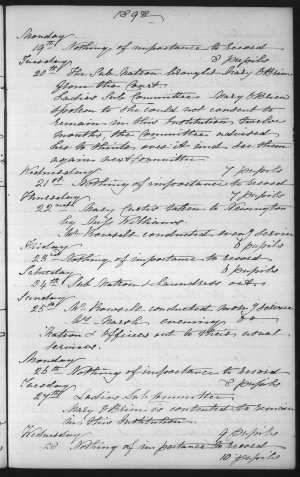 1898
Monday
19th Nothing of importance to record
Tuesday 8 pupils
20th The Sub Matron brought Mary O'Brien
from the Court
Ladies Sub Committee. Mary O'Brien
spoken to she could not consent to
remain in this Institution twelve
months, the Committee advised
her to think over it and see them
again next Committee
Wednesday 7 pupils
21st Nothing of importance to record
Thursday 7 pupils
22nd Mary Curtis taken to Kennington
by Miss Williams.
Mr Rowsell conducted eveng service
Friday 8 pupils
23rd Nothing of importance to record
Saturday 8 pupils
24th Sub Matron & Laundress out
Sunday
25th Mr Rowsell conducted morng service
Mr Marsh evening Do
Matron & Officers out to their usual
services.
Monday
26th Nothing of importance to record
Tuesday 8 pupils
27th Ladies Sub Committee
Mary O'Brien is contented to remain
in this Institution.
Wednesday 9 pupils
28 Nothing of importance to record
10 pupils